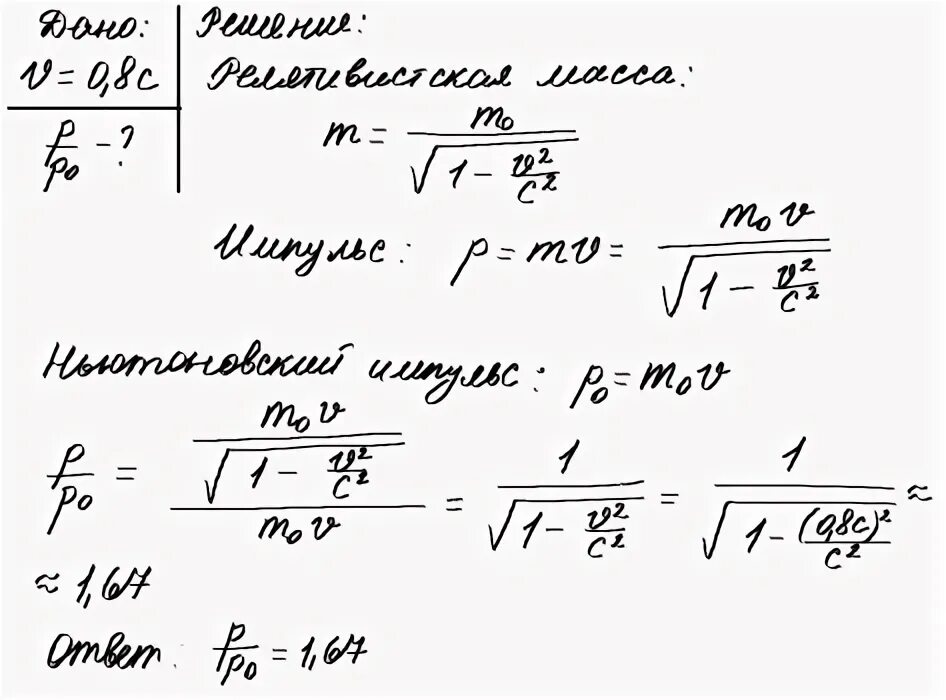 Дано:
v = 0,8c
p/p₀ - ?
Решение:
Релятивистская масса:
m = m₀ / √(1 - v²/c²)
Импульс: p = mv = m₀v / √(1 - v²/c²)
Ньютоновский импульс: p₀ = m₀v
p/p₀ = (m₀v / √(1 - v²/c²)) / m₀v = 1 / √(1 - v²/c²) = 1 / √(1 - (0,8c)²/c²) ≈
≈ 1,67
Ответ: p/p₀ = 1,67